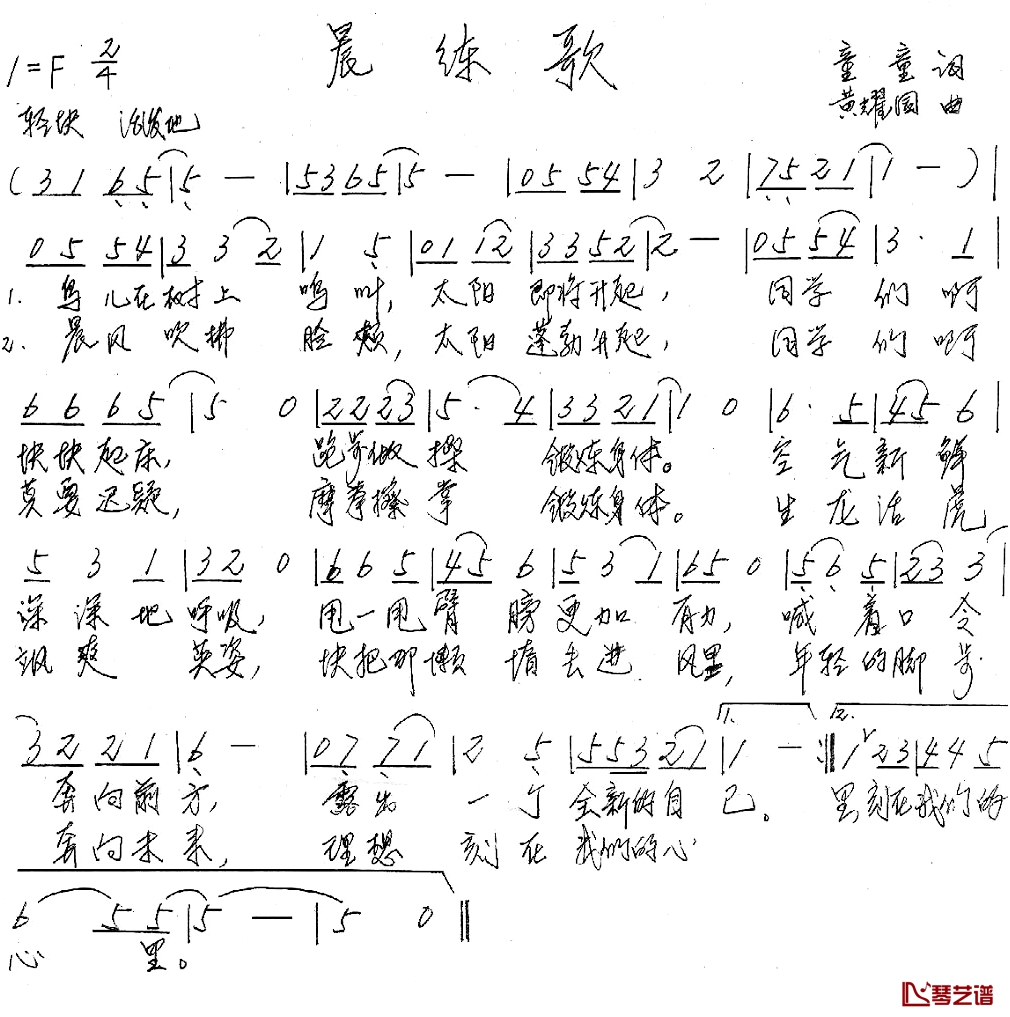 晨练歌
1=F 2/4
童童 词
黄耀国 曲
轻快 活泼地
(3 1 6 5|5 — |5 3 6 5|5 — |0 5 5 4|3 2 |7 5 2 1|1 — )|
0 5 5 4|3 3 2|1 5|0 1 1 2|3 3 5 2|2 — |0 5 5 4|3 · 1|
1. 鸟儿在树上 鸣叫, 太阳 即将升起, 同学们啊
2. 晨风吹拂 脸颊, 太阳 蓬勃升起, 同学们啊
6 6 6 5|5 0|2 2 2 3|5 · 4|3 3 2 1|1 0|6 · 5|4 5 6|
快快起床, 跑步做操 锻炼身体。 空气新鲜
莫要迟疑, 摩拳擦掌 锻炼身体。 生龙活虎
5 3 1|3 2 0|6 6 5|4 5 6|5 3 1|6 5 0|5 6 5|2 3 3|
深深地呼吸, 甩一甩臂膀更加有力, 喊着口令
飒爽英姿, 快把那懒惰丢进风里, 年轻的脚步
1. 2.
3 2 2 1|6 — |0 7 7 1|2 5|5 5 3 2 1|1 — :‖1 2 3|4 4 5
奔向前方, 露出一个全新的自己。 里刻在我们的
奔向未来, 理想刻在我们的心
6 5 5|5 — |5 0‖
心里。
琴艺谱